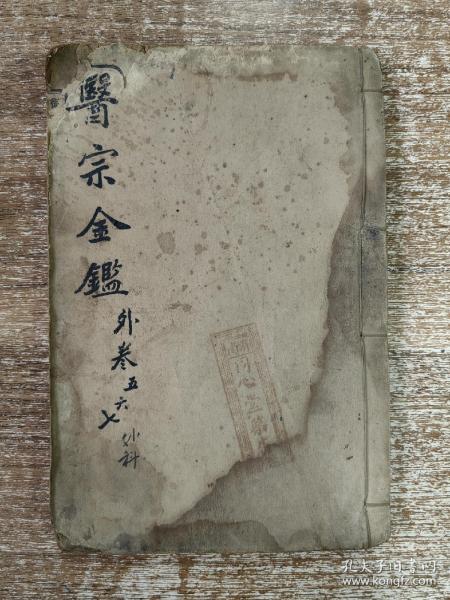 醫宗金鑑
外卷五六七
外科
孔夫子旧书网
www.kongfz.com